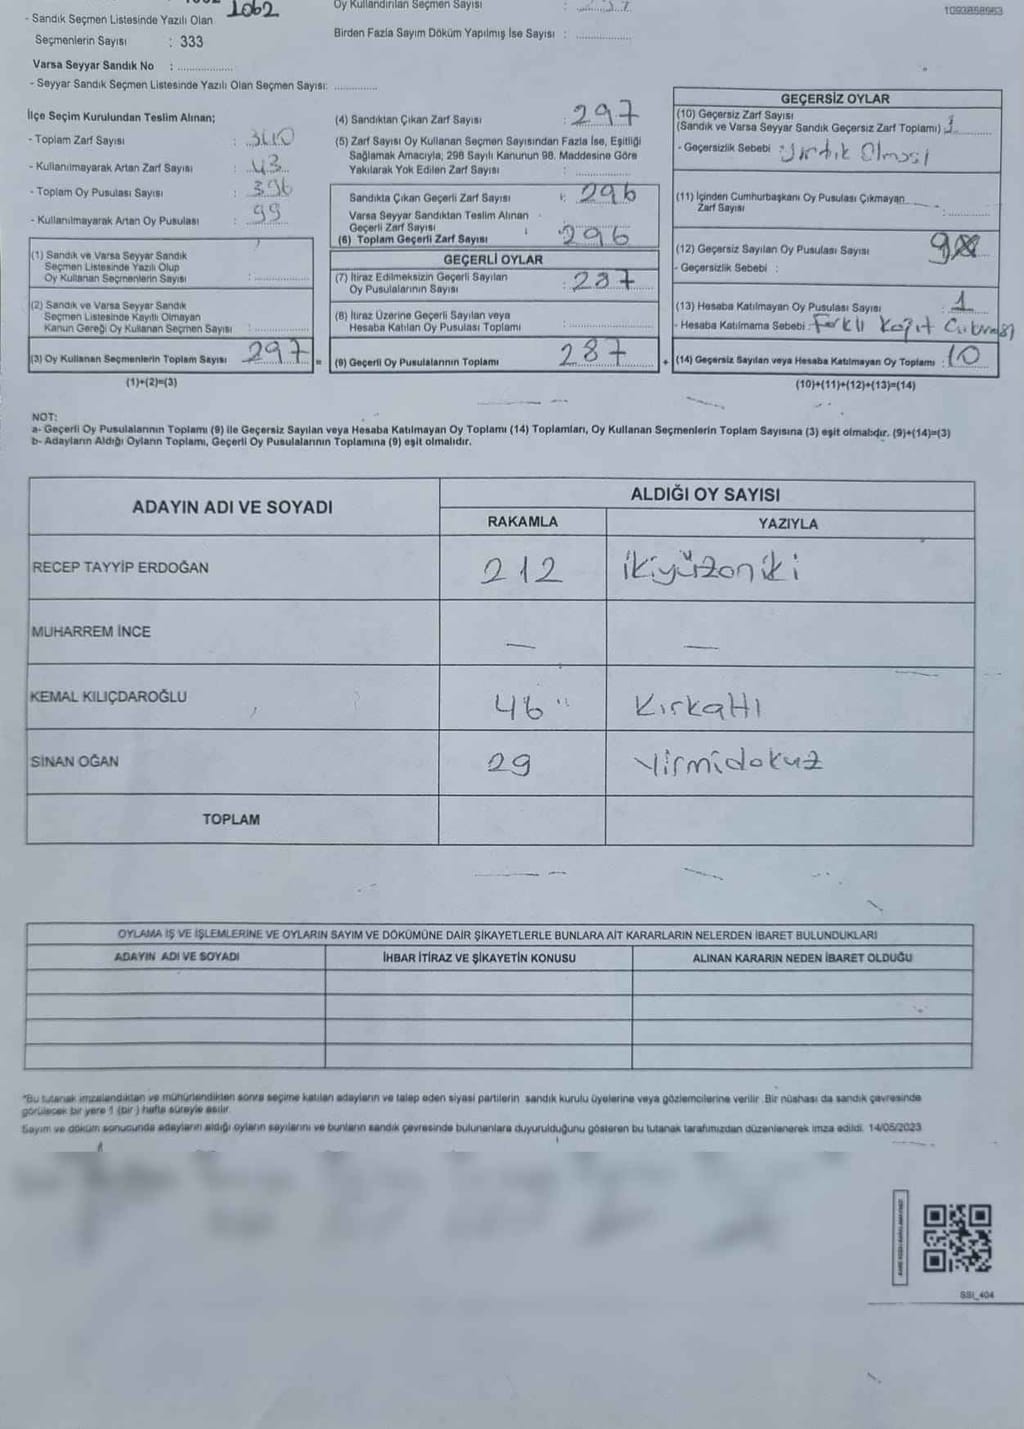 1062
- Sandık Seçmen Listesinde Yazılı Olan
Seçmenlerin Sayısı : 333
Varsa Seyyar Sandık No :
- Seyyar Sandık Seçmen Listesinde Yazılı Olan Seçmen Sayısı:
Oy Kullandırılan Seçmen Sayısı :
Birden Fazla Sayım Döküm Yapılmış İse Sayısı :
1093858963
İlçe Seçim Kurulundan Teslim Alınan;
- Toplam Zarf Sayısı : 340
- Kullanılmayarak Artan Zarf Sayısı : 43
- Toplam Oy Pusulası Sayısı : 396
- Kullanılmayarak Artan Oy Pusulası : 99
(1) Sandık ve Varsa Seyyar Sandık
Seçmen Listesinde Yazılı Olup
Oy Kullanan Seçmenlerin Sayısı :
(2) Sandık ve Varsa Seyyar Sandık
Seçmen Listesinde Kayıtlı Olmayan
Kanun Gereği Oy Kullanan Seçmen Sayısı :
(3) Oy Kullanan Seçmenlerin Toplam Sayısı : 297 =
(1)+(2)=(3)
(4) Sandıktan Çıkan Zarf Sayısı : 297
(5) Zarf Sayısı Oy Kullanan Seçmen Sayısından Fazla İse, Eşitliği
Sağlamak Amacıyla, 298 Sayılı Kanunun 98. Maddesine Göre
Yakılarak Yok Edilen Zarf Sayısı :
Sandıkta Çıkan Geçerli Zarf Sayısı : 296
Varsa Seyyar Sandıktan Teslim Alınan
Geçerli Zarf Sayısı :
(6) Toplam Geçerli Zarf Sayısı : 296
GEÇERLİ OYLAR
(7) İtiraz Edilmeksizin Geçerli Sayılan
Oy Pusulalarının Sayısı : 287
(8) İtiraz Üzerine Geçerli Sayılan veya
Hesaba Katılan Oy Pusulası Toplamı :
(9) Geçerli Oy Pusulalarının Toplamı : 287 +
GEÇERSİZ OYLAR
(10) Geçersiz Zarf Sayısı
(Sandık ve Varsa Seyyar Sandık Geçersiz Zarf Toplamı) : 1
- Geçersizlik Sebebi : Yırtık Olması
(11) İçinden Cumhurbaşkanı Oy Pusulası Çıkmayan
Zarf Sayısı :
(12) Geçersiz Sayılan Oy Pusulası Sayısı
- Geçersizlik Sebebi :
(13) Hesaba Katılmayan Oy Pusulası Sayısı : 1
- Hesaba Katılmama Sebebi : Farklı Kağıt Çıkması
(14) Geçersiz Sayılan veya Hesaba Katılmayan Oy Toplamı : 10
(10)+(11)+(12)+(13)=(14)
NOT:
a- Geçerli Oy Pusulalarının Toplamı (9) ile Geçersiz Sayılan veya Hesaba Katılmayan Oy Toplamı (14) Toplamları, Oy Kullanan Seçmenlerin Toplam Sayısına (3) eşit olmalıdır. (9)+(14)=(3)
b- Adayların Aldığı Oyların Toplamı, Geçerli Oy Pusulalarının Toplamına (9) eşit olmalıdır.
ADAYIN ADI VE SOYADI
ALDIĞI OY SAYISI
RAKAMLA YAZIYLA
RECEP TAYYİP ERDOĞAN 212 ikiyüzoniki
MUHARREM İNCE — —
KEMAL KILIÇDAROĞLU 46 Kırkaltı
SİNAN OĞAN 29 Yirmidokuz
TOPLAM
OYLAMA İŞ VE İŞLEMLERİNE VE OYLARIN SAYIM VE DÖKÜMÜNE DAİR ŞİKAYETLERLE BUNLARA AİT KARARLARIN NELERDEN İBARET BULUNDUKLARI
ADAYIN ADI VE SOYADI İHBAR İTİRAZ VE ŞİKAYETİN KONUSU ALINAN KARARIN NEDEN İBARET OLDUĞU
*Bu tutanak imzalandıktan ve mühürlendikten sonra seçime katılan adayların ve talep eden siyasi partilerin sandık kurulu üyelerine veya gözlemcilerine verilir. Bir nüshası da sandık çevresinde
görülecek bir yere 1 (bir) hafta süreyle asılır.
Sayım ve döküm sonucunda adayların aldığı oyların sayılarını ve bunların sandık çevresinde bulunanlara duyurulduğunu gösteren bu tutanak tarafımızdan düzenlenerek imza edildi. 14/05/2023
SSI_404